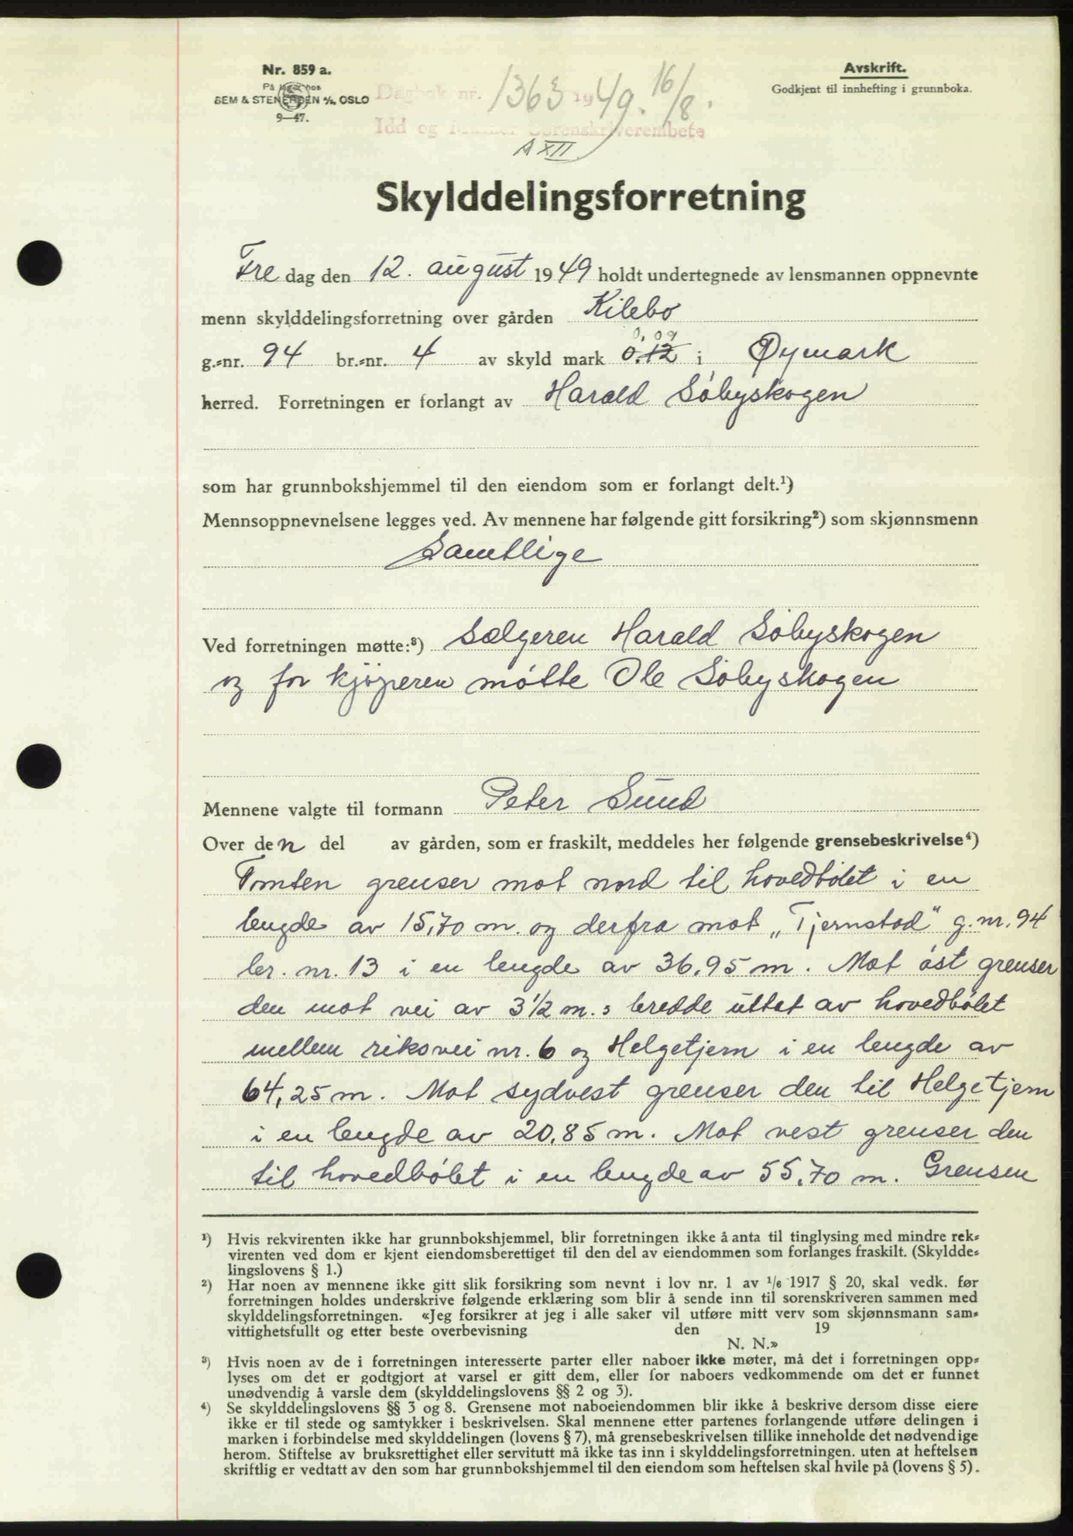 Nr. 859 a.
På lager hos
SEM & STENERSEN A/S, OSLO
9—47.
Avskrift.
Godkjent til innhefting i grunnboka.
Dagbok nr. 1363 1949. 16/8.
Idd og Marker Sorenskriverembete
A XII
Skylddelingsforretning
Fre dag den 12. august 1949 holdt undertegnede av lensmannen oppnevnte
menn skylddelingsforretning over gården Kilebo
0,09
g.-nr. 94 br.-nr. 4 av skyld mark 0.12 i Øymark
herred. Forretningen er forlangt av Harald Søbyskogen
som har grunnbokshjemmel til den eiendom som er forlangt delt.¹)
Mennsoppnevnelsene legges ved. Av mennene har følgende gitt forsikring²) som skjønnsmenn
Samtlige
Ved forretningen møtte:³) Sælgeren Harald Søbyskogen
og for kjøperen møtte Ole Søbyskogen
Mennene valgte til formann Peter Sund
Over den del av gården, som er fraskilt, meddeles her følgende grensebeskrivelse⁴)
Tomten grenser mot nord til hovedbølet i en
lengde av 15,70 m. og derfra mot „Tjernstad" g. nr. 94
br. nr. 13 i en lengde av 36,95 m. Mot øst grenser
den mot vei av 3½ m.s bredde uttat av hovedbølet
mellem riksvei nr. 6 og Helgetjern i en lengde av
64,25 m. Mot sydvest grenser den til Helgetjern
i en lengde av 20,85 m. Mot vest grenser den
til hovedbølet i en lengde av 55,70 m. Grensen
¹) Hvis rekvirenten ikke har grunnbokshjemmel, blir forretningen ikke å anta til tinglysing med mindre rek-
virenten ved dom er kjent eiendomsberettiget til den del av eiendommen som forlanges fraskilt. (Skyldde-
lingslovens § 1.)
²) Har noen av mennene ikke gitt slik forsikring som nevnt i lov nr. 1 av 1/6 1917 § 20, skal vedk. før
forretningen holdes underskrive følgende erklæring som blir å sende inn til sorenskriveren sammen med
skylddelingsforretningen. «Jeg forsikrer at jeg i alle saker vil utføre mitt verv som skjønnsmann sam-
vittighetsfullt og etter beste overbevisning den 19
N. N.»
³) Hvis noen av de i forretningen interesserte parter eller naboer ikke møter, må det i forretningen opp-
lyses om det er godtgjort at varsel er gitt dem, eller for naboers vedkommende om det er funnet
unødvendig å varsle dem (skylddelingslovens §§ 2 og 3).
⁴) Se skylddelingslovens §§ 3 og 8. Grensene mot naboeiendommen blir ikke å beskrive dersom disse eiere
ikke er til stede og samtykker i beskrivelsen. Skal mennene etter partenes forlangende utføre delingen i
marken i forbindelse med skylddelingen (lovens § 7), må grensebeskrivelsen tillike inneholde det nødvendige
herom. Stiftelse av bruksrettighet eller servitutt må ikke tas inn i skylddelingsforretningen. uten at heftelsen
skriftlig er vedtatt av den som har grunnbokshjemmel til den eiendom som heftelsen skal hvile på (lovens § 5).